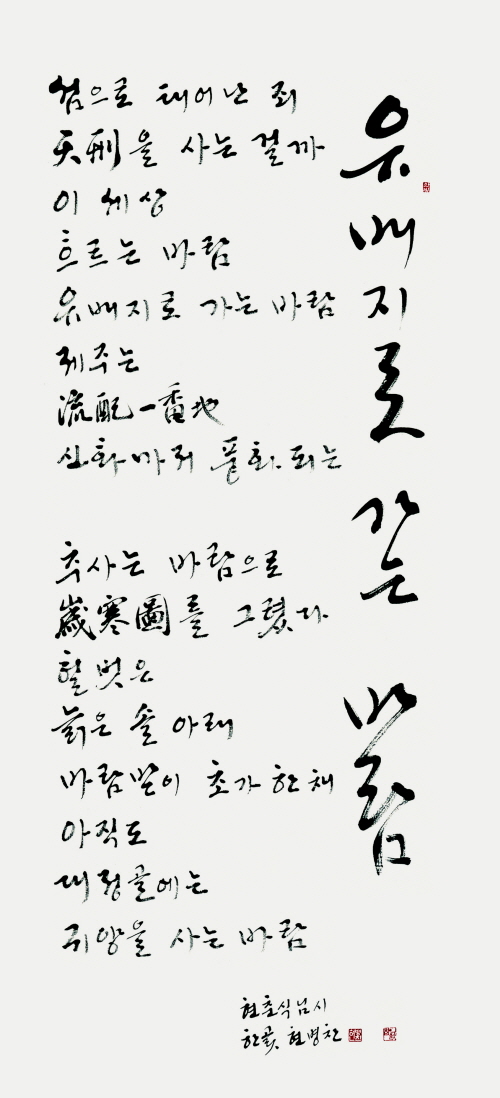 유배지로 가는 바람
섬으로 태어난 죄
天刑을 사는 걸까
이 세상
흐르는 바람
유배지로 가는 바람
제주는
流配一番地
신화마저 풍화되는
추사는 바람으로
歲寒圖를 그렸다
헐벗은
늙은 솔 아래
바람받이 초가 한 채
아직도
대정골에는
귀양을 사는 바람
현춘식님 시
한곬 현병찬